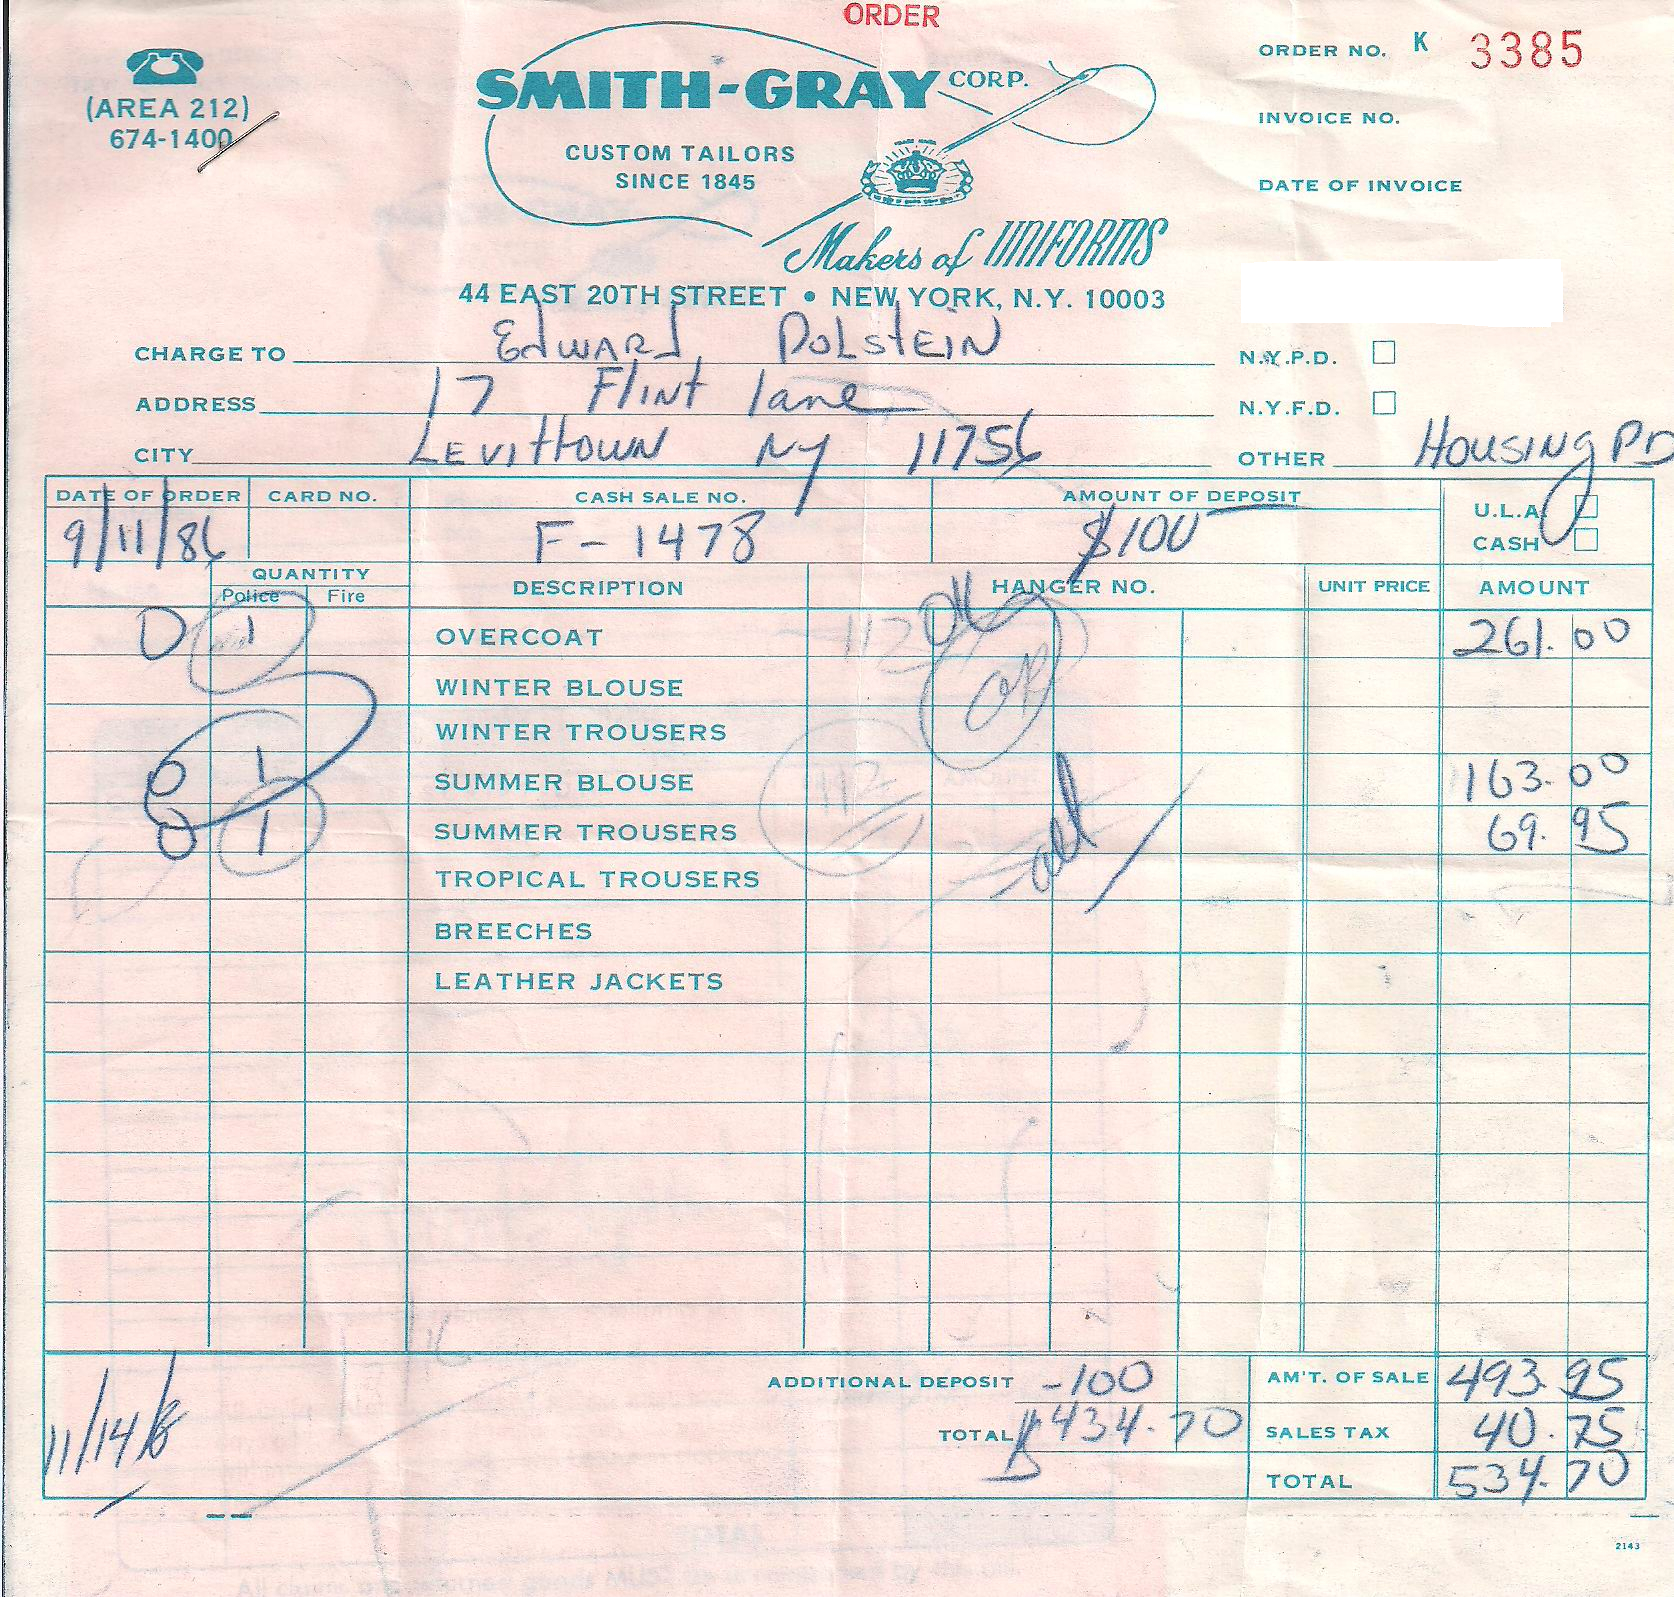 ORDER
ORDER NO. K 3385
(AREA 212)
674-1400
SMITH-GRAY CORP.
CUSTOM TAILORS
SINCE 1845
INVOICE NO.
DATE OF INVOICE
Makers of UNIFORMS
44 EAST 20TH STREET • NEW YORK, N.Y. 10003
CHARGE TO Edward Dolstein
N.Y.P.D.
ADDRESS 17 Flint lane
N.Y.F.D.
CITY Levittown NY 11756
OTHER Housing PD
DATE OF ORDER CARD NO. CASH SALE NO. AMOUNT OF DEPOSIT U.L.A.
9/11/86 F-1478 $100 CASH
QUANTITY
Police Fire DESCRIPTION HANGER NO. UNIT PRICE AMOUNT
0 1 OVERCOAT 112 OK 261.00
WINTER BLOUSE
WINTER TROUSERS
0 1 SUMMER BLOUSE 112 163.00
0 1 SUMMER TROUSERS 69.95
TROPICAL TROUSERS
BREECHES
LEATHER JACKETS
ADDITIONAL DEPOSIT -100 AM'T. OF SALE 493.95
11/14/8
TOTAL $434.70 SALES TAX 40.75
TOTAL 534.70
2143